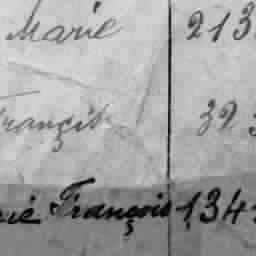 Marie 213
François 323
rie François 1343